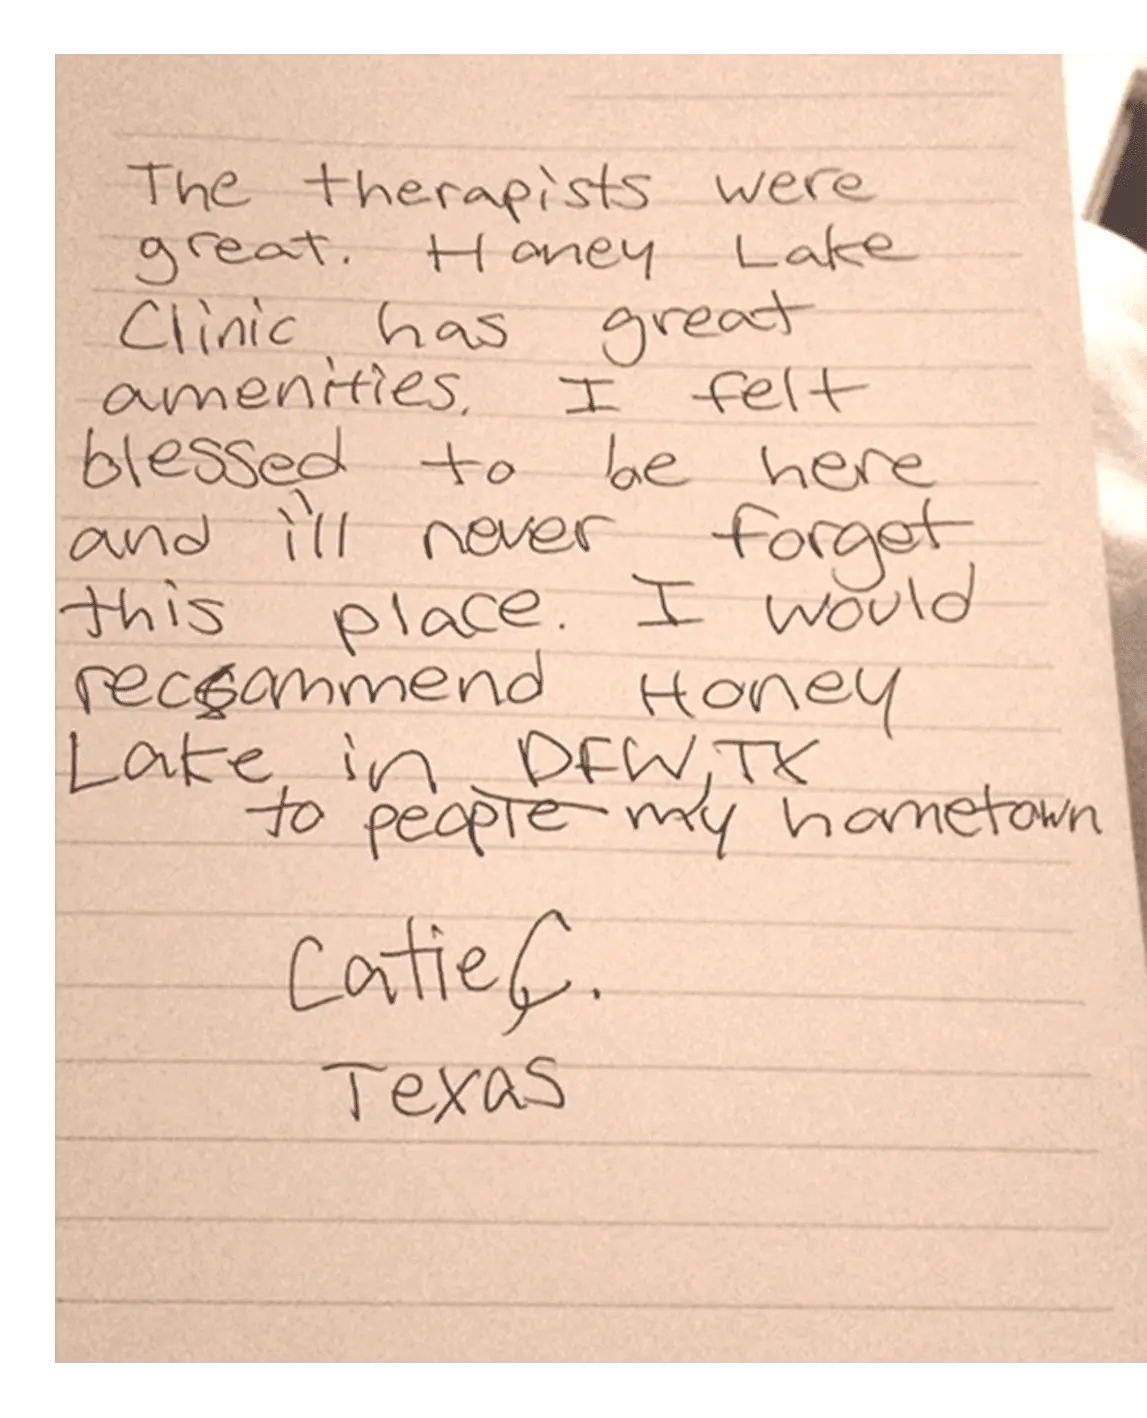 The therapists were
great. Honey Lake
Clinic has great
amenities. I felt
blessed to be here
and i'll never forget
this place. I would
recommend Honey
Lake in DFW, TX
to people my hometown
Catie C.
Texas